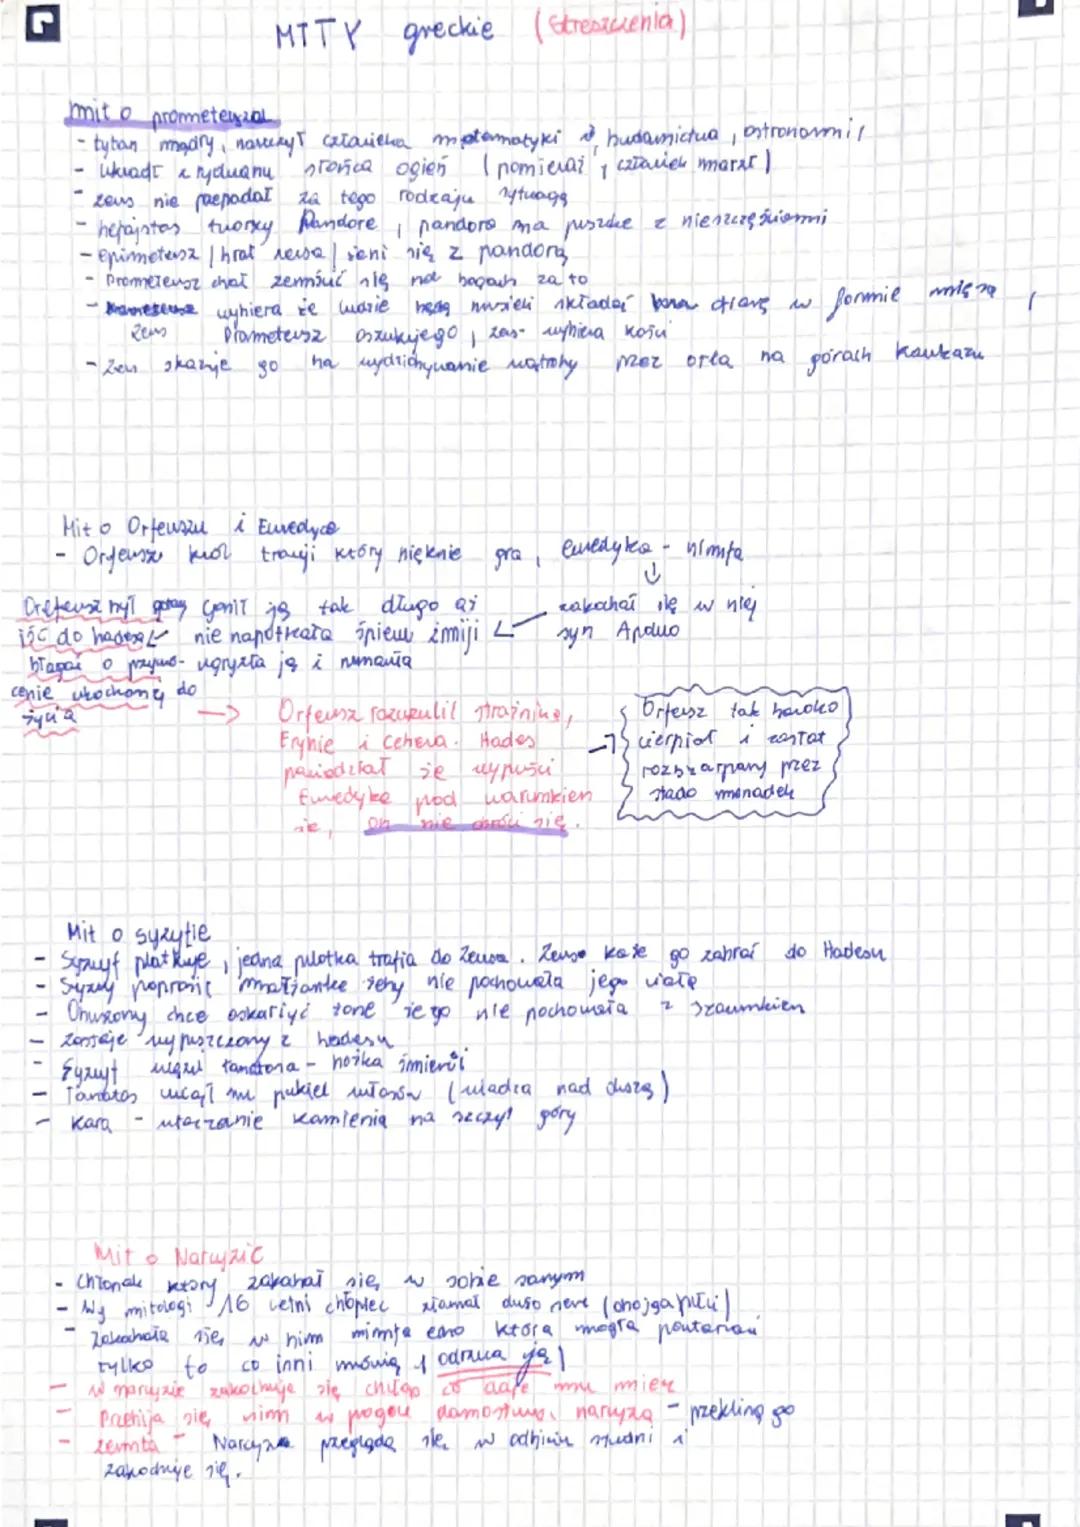 MITY greckie (streszczenia)
mit o prometeuszu
- tytan mądry, nauczył człowieka matematyki i budownictwa, astronomii
- ukradł z rydwanu słońca ogień (ponieważ człowiek marzł)
- zeus nie przepadał za tego rodzaju sytuacją
- hefajstos tworzy Pandore, pandora ma puszke z nieszczęściami
- epimeteusz (brat zeusa) żeni się z pandorą
- Prometeusz chał zemścić się na bogach za to
- wybiera że ludzie będą musieli składać ofiarę w formie mięsa,
Zeus Prometeusz oszukuje go, zeus wybiera kości
- Zeus skazuje go na wydziobywanie wątroby przez orła na górach Kaukazu
Mit o Orfeuszu i Euredyce
- Orfeusz król tracji który pięknie gra, Euredyka - nimfa
Orfeusz był gotowy gonił ją tak długo aż zakochał się w niej
iść do hadesu nie napotkała śpiew żmiji syn Apollo
błagać o przywró- ugryzła ją i umarła
cenie ukochanej do
życia
Orfeusz rozczulił strażnika,
Erynie i Cerbera. Hades
powiedział że wypuści
Euredyke pod warunkiem
że, on nie obróci się.
Orfeusz tak bardzo
cierpiał i został
rozszarpany przez
stado menadek
Mit o syzyfie
- Syzyf plotkuje, jedna plotka trafia do Zeusa. Zeus każe go zabrać do Hadesu
- Syzyf poprosił małżonke żeby nie pochowała jego ciała
- Oburzony chce oskarżyć żone że go nie pochowała z szacunkiem
- zostaje wypuszczony z hadesu
- Syzyf więzi tanatosa - bożka śmierci
- Tanatos uciął mu pukiel włosów (władza nad duszą)
- kara - wtaczanie kamienia na szczyt góry
Mit o Narcyzie
- Chłopak który zakochał się w sobie samym
- Wg mitologi 16 letni chłopiec złamał dużo serc (obojga płci)
- Zakochała się w nim nimfa echo która mogła powtarzać
tylko to co inni mówią (odrzuca ją)
- w narcyzie zakochuje się chłop co daje mu miecz
- Przebija się nim w progu domostwa narcyza - przeklina go
- zemsta - Narcyz przegląda się w odbiciu studni i
zakochuje się.